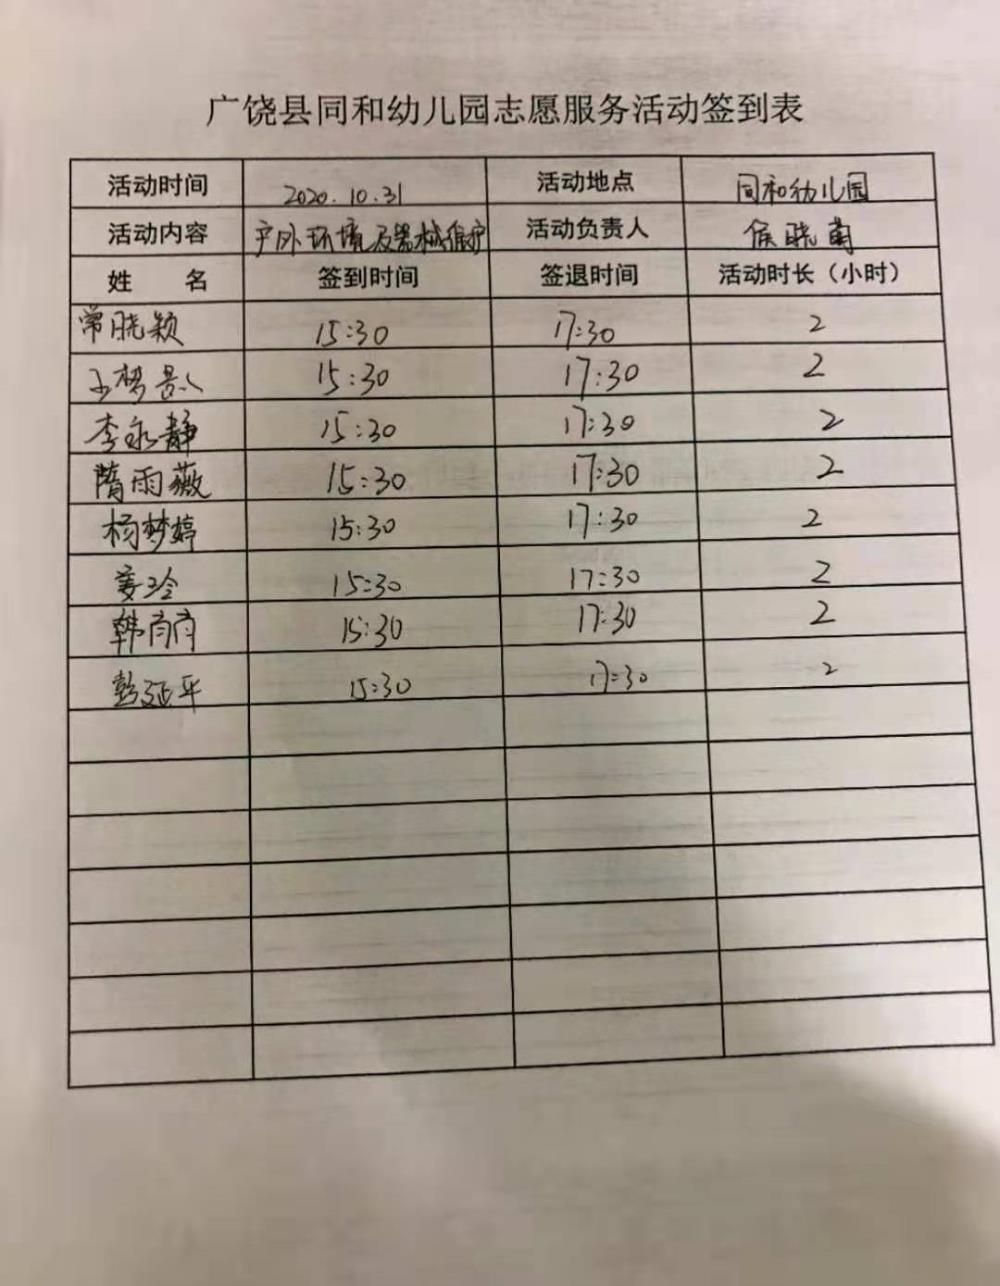 广饶县同和幼儿园志愿服务活动签到表
活动时间 2020.10.31 活动地点 同和幼儿园
活动内容 户外环境及器械维护 活动负责人 侯晓菊
姓 名 签到时间 签退时间 活动时长（小时）
常晓颖 15:30 17:30 2
王梦 15:30 17:30 2
李永静 15:30 17:30 2
隋雨薇 15:30 17:30 2
杨梦婷 15:30 17:30 2
姜玲 15:30 17:30 2
韩肖肖 15:30 17:30 2
彭延平 15:30 17:30 2